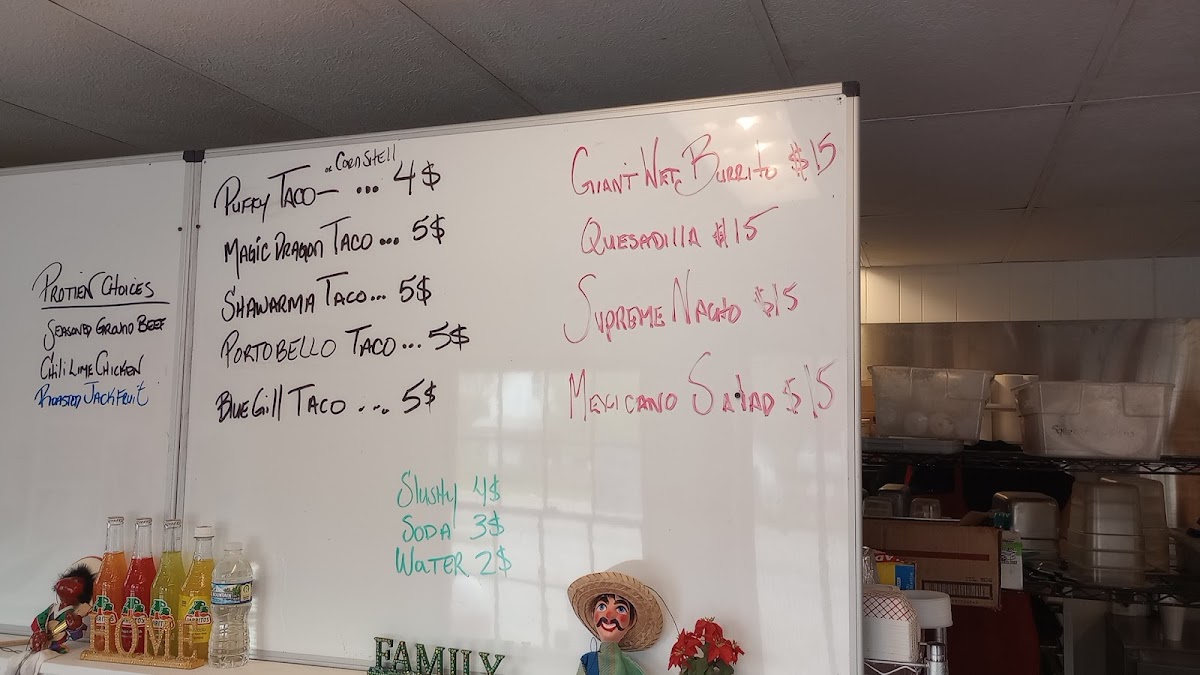 PROTIEN CHOICES
SEASONED GROUND BEEF
CHILI LIME CHICKEN
ROASTED JACKFRUIT
OR CORN SHELL
PUFFY TACO — ... 4$
MAGIC DRAGON TACO ... 5$
SHAWARMA TACO ... 5$
PORTOBELLO TACO ... 5$
BLUE GILL TACO .... 5$
GIANT WET BURRITO $15
QUESADILLA $15
SUPREME NACHO $15
MEXICANO SALAD $15
SLUSHY 4$
SODA 3$
WATER 2$
HOME
FAMILY